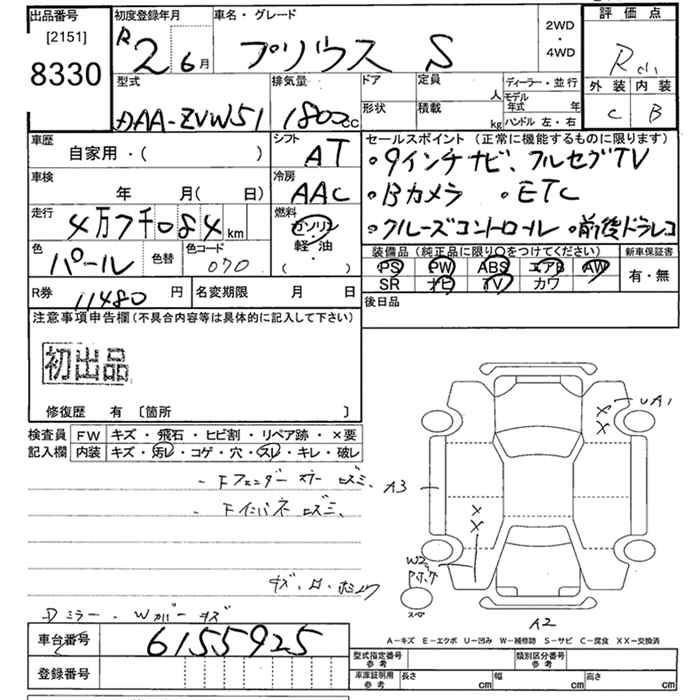 出品番号 初度登録年月 車名・グレード 評価点
[2151] R2 6月 プリウス S 2WD・4WD R
8330 外装 内装
型式 排気量 ドア 定員 人 ディーラー・並行 C B
DAA-ZVW51 1800cc 形状 積載 kg モデル年式 年
ハンドル 左・右
車歴 シフト セールスポイント (正常に機能するものに限ります)
自家用・( ) AT ・9インチナビ、フルセグTV
車検 冷房 ・Bカメラ ・ETC
年 月( 日) AAC ・クルーズコントロール ・前後ドラレコ
走行 燃料
4万7千084km ガソリン 装備品 (純正品に限り○をつけてください) 新車保証書
色 色替 色コード 軽・油 PS PW ABS エアB AW 有・無
パール 070 ( ・ ) SR ナビ TV カワ
R券 11480円 名変期限 月 日 後日品
注意事項申告欄(不具合内容等は具体的に記入して下さい)
初出品
修復歴 有 〔箇所 〕
検査員 FW キズ・飛石・ヒビ割・リペア跡・×要
記入欄 内装 キズ・汚レ・コゲ・穴・スレ・キレ・破レ
UA1
××
A3
××
W2
A2
Dミラー・Wカバーキズ
A-キズ E-エクボ U-凹み W-補修跡 S-サビ C-腐食 XX-交換済
車台番号 6155925
登録番号
型式指定番号 参考 類別区分番号 参考
車庫証明用 参考 長さ cm 幅 cm 高さ cm